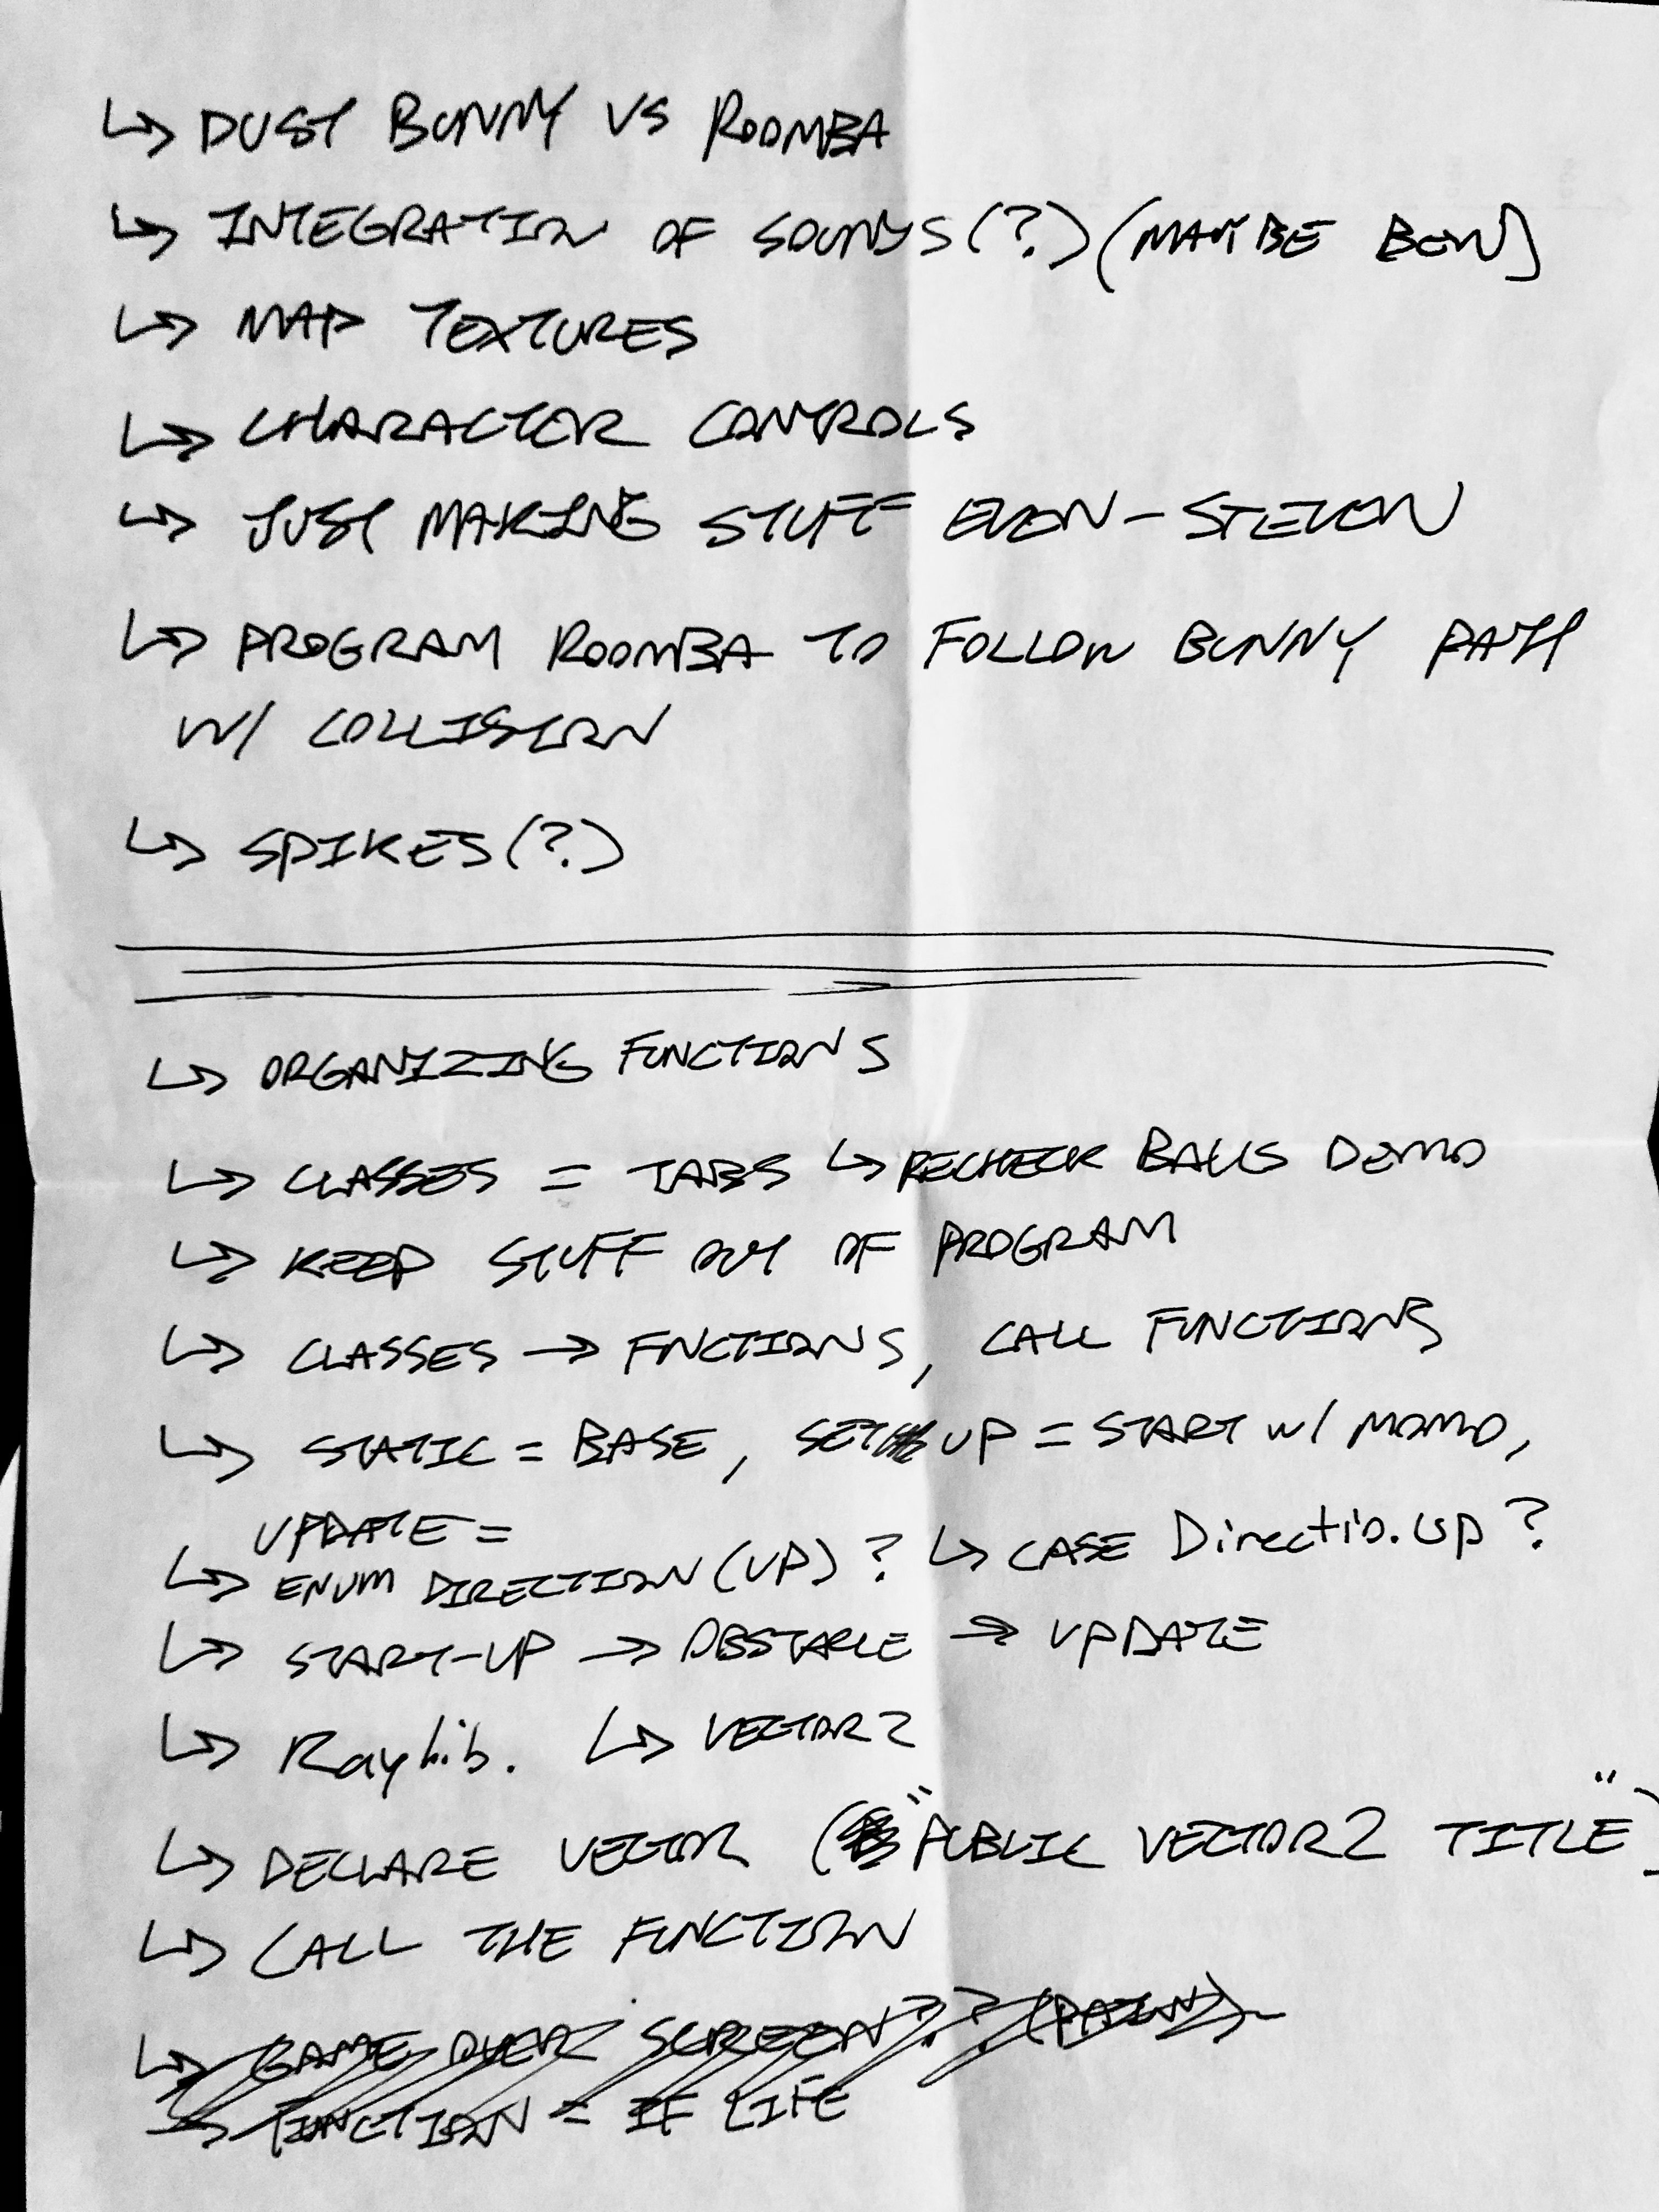 ↳ DUST BUNNY VS ROOMBA
↳ INTEGRATION OF SOUNDS(?) (MAYBE BEN)
↳ MAP TEXTURES
↳ CHARACTER CONTROLS
↳ JUST MAKING STUFF EVEN-STEVEN
↳ PROGRAM ROOMBA TO FOLLOW BUNNY PATH
W/ COLLISION
↳ SPIKES(?)
↳ ORGANIZING FUNCTIONS
↳ CLASSES = TABS ↳ RECHECK BALLS DEMO
↳ KEEP STUFF OUT OF PROGRAM
↳ CLASSES → FNCTIONS, CALL FUNCTIONS
↳ STATIC = BASE, SET UP = START W/ MOMO,
UPDATE =
↳ ENUM DIRECTION (UP) ? ↳ CASE Directio.up ?
↳ START-UP → OBSTACLE → UPDATE
↳ Raylib. ↳ VECTOR2
↳ DECLARE VECTOR ("PUBLIC VECTOR2 TITLE")
↳ CALL THE FUNCTION
↳ GAME OVER SCREEN?? (PAIN)
↳ FUNCTION = IF LIFE